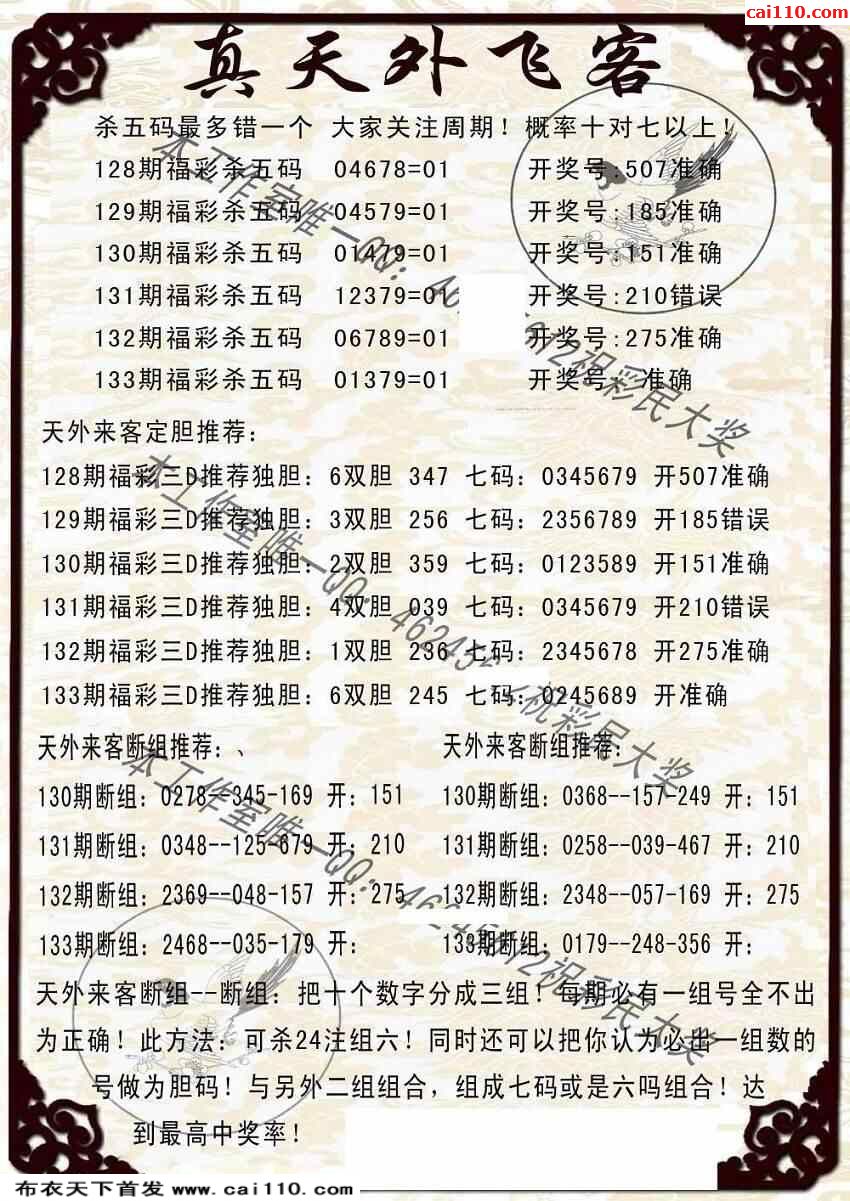 cai110.com
真天外飞客
杀五码最多错一个 大家关注周期！概率十对七以上！
128期福彩杀五码 04678=01 开奖号:507准确
129期福彩杀五码 04579=01 开奖号:185准确
130期福彩杀五码 01479=01 开奖号:151准确
131期福彩杀五码 12379=01 开奖号:210错误
132期福彩杀五码 06789=01 开奖号:275准确
133期福彩杀五码 01379=01 开奖号: 准确
天外来客定胆推荐：
128期福彩三D推荐独胆：6双胆 347 七码：0345679 开507准确
129期福彩三D推荐独胆：3双胆 256 七码：2356789 开185错误
130期福彩三D推荐独胆：2双胆 359 七码：0123589 开151准确
131期福彩三D推荐独胆：4双胆 039 七码：0345679 开210错误
132期福彩三D推荐独胆：1双胆 236 七码：2345678 开275准确
133期福彩三D推荐独胆：6双胆 245 七码：0245689 开准确
天外来客断组推荐：、 天外来客断组推荐：
130期断组：0278--345-169 开：151 130期断组：0368--157-249 开：151
131期断组：0348--125-679 开：210 131期断组：0258--039-467 开：210
132期断组：2369--048-157 开：275 132期断组：2348--057-169 开：275
133期断组：2468--035-179 开： 133期断组：0179--248-356 开：
天外来客断组--断组：把十个数字分成三组！每期必有一组号全不出
为正确！此方法：可杀24注组六！同时还可以把你认为必出一组数的
号做为胆码！与另外二组组合，组成七码或是六吗组合！达
到最高中奖率！
本工作室唯一QQ：
祝彩民大奖
本工作室唯一QQ：
祝彩民大奖
本工作室唯一QQ：
祝彩民大奖
布衣天下首发 www.cai110.com